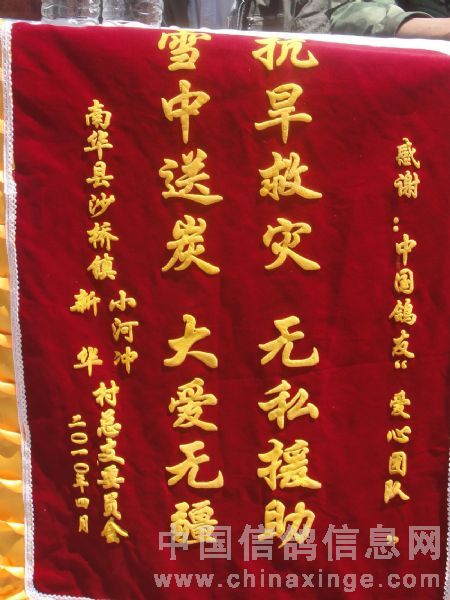 感谢：“中国鸽友”爱心团队
抗旱救灾 无私援助
雪中送炭 大爱无疆
南华县沙桥镇
小河冲
新华
村总支委员会
二〇一〇年四月
中国信鸽信息网
www.chinaxinge.com